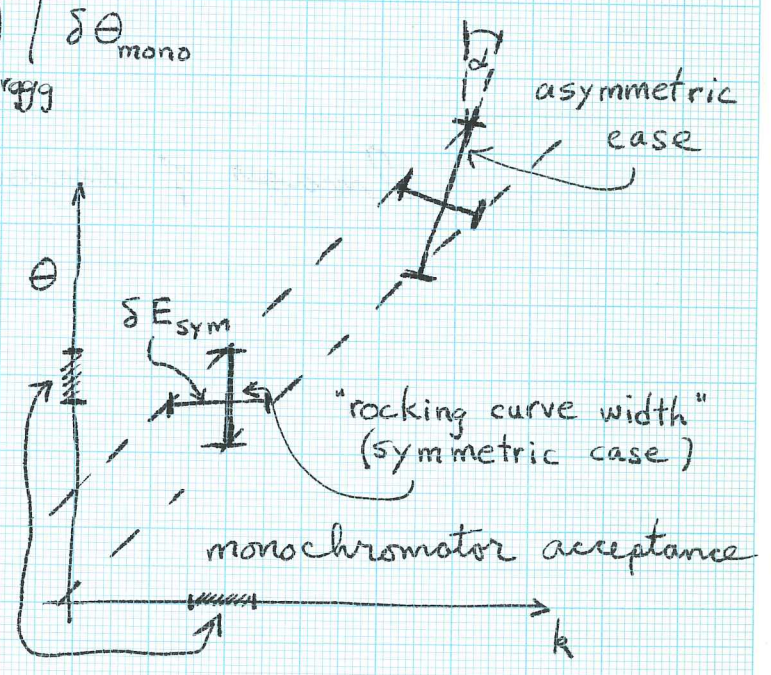 δθmono
ragg
α
asymmetric
case
θ
δEsym
"rocking curve width"
(symmetric case)
monochromator acceptance
k